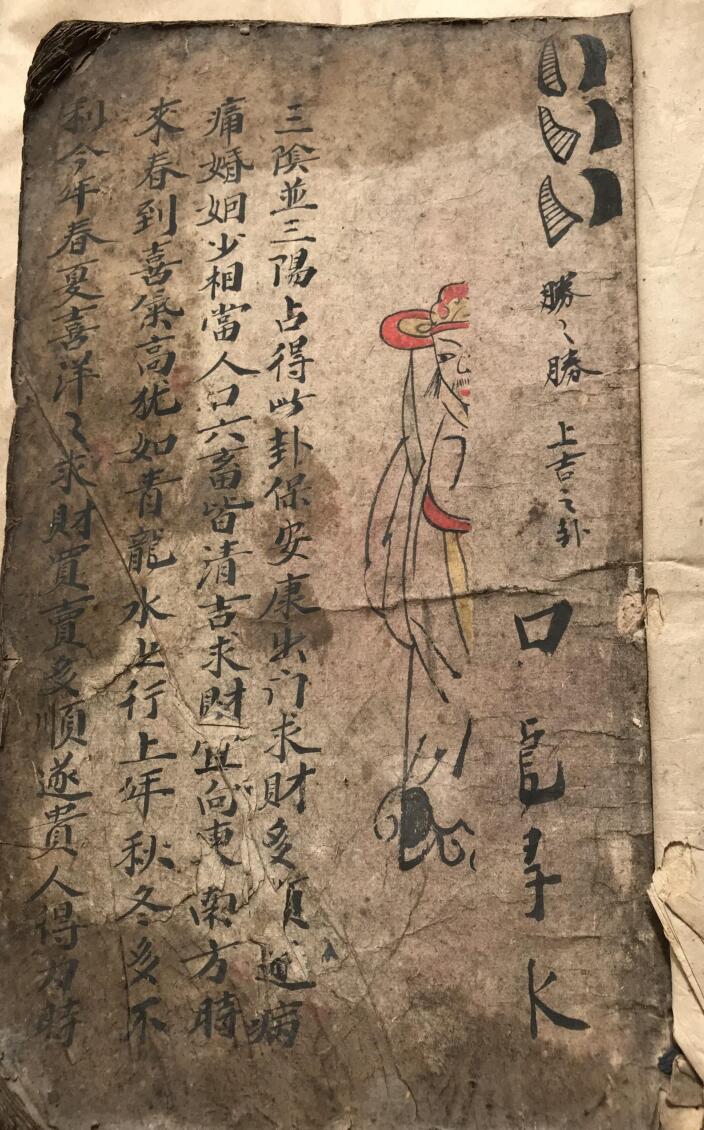 勝〻勝
上吉之卦
三陰並三陽占得此卦保安康出门求财多順遂病
痛婚姻少相當人口六畜皆清吉求财宜向東南方時
來春到喜氣高犹如青龍水上行上年秋冬多不
利今年春夏喜洋〻求財買賣多順遂貴人得力時